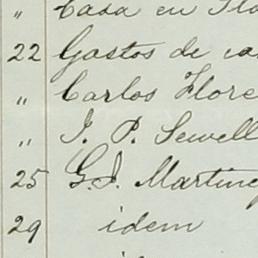 " Casa en
22 Gastos de
" Carlos Flore
" J. P. Sewell
25 G. J. Martine
29 idem